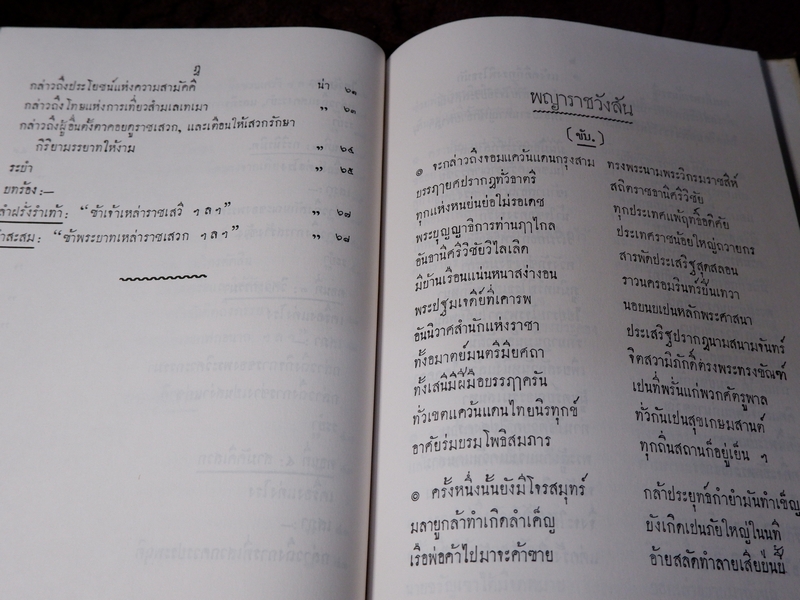 ฎ
กล่าวถึงประโยชน์แห่งความสามัคคี น่า ๖๑
กล่าวถึงโทษแห่งการเที่ยวสำมเลเทเมา ” ๖๓
กล่าวถึงผู้อื่นตั้งตาคอยดูราชเสวก, และเตือนให้เสวกรักษา
กิริยามรรยาทให้งาม ” ๖๔
ระบำ ” ๖๕
บทร้อง:—
ลำฝรั่งรำเท้า: “ข้าเจ้าเหล่าราชเสวี ฯ ล ฯ” ” ๖๗
สะสม: “ข้าพระบาทเหล่าราชเสวก ฯ ล ฯ” ” ๖๘
พญาราชวังสัน
(ขับ.)
๏ จะกล่าวถึงจอมแคว้นแดนกรุงสาม ทรงพระนามพระวิกรมราชสีห์
บรรฦายศปรากฎทั่วธาตรี สถิตราชธานีศรีวิชัย
ทุกแห่งหนย่นย่อไม่รอเดช ทุกประเทศแพ้ฤทธิ์อดิศัย
พระบุญญาธิการท่านฦาไกล ประเทศราชน้อยใหญ่ถวายกร
อันธานีศรีวิชัยวิไลเลิศ สารพัดประเสริฐสุดสลอน
มีบ้านเรือนแน่นหนาสง่างอน ราวนครอมรินทร์ปิ่นเทวา
พระปฐมเจดีย์ที่เคารพ นอบนบเปนหลักพระศาสนา
อันนิวาศสำนักแห่งราชา ประเสริฐปรากฎนามสนามจันทร์
ทั้งอมาตย์มนตรีมียศถา จิตสวามิภักดิ์ตรงพระทรงขัณฑ์
ทั้งเสนีมีฝีมือบรรฦาครัน เปนที่พรั่นแก่พวกศัตรูพาล
ทั่วเขตแคว้นแดนไทยนิรทุกข์ ทั่วกันเปนสุขเกษมสานต์
อาศัยร่มบรมโพธิสมภาร ทุกถิ่นสถานก็อยู่เย็น ฯ
๏ ครั้งหนึ่งนั้นยังมีโจรสมุทร์ กล้าประยุทธ์กำยำมันทำเข็ญ
มลายูกล้าทำเกิดลำเค็ญ บังเกิดเปนภัยใหญ่ในนที
เรือพ่อค้าไปมาจะค้าขาย อ้ายสลัดทำลายเสียป่นปี้